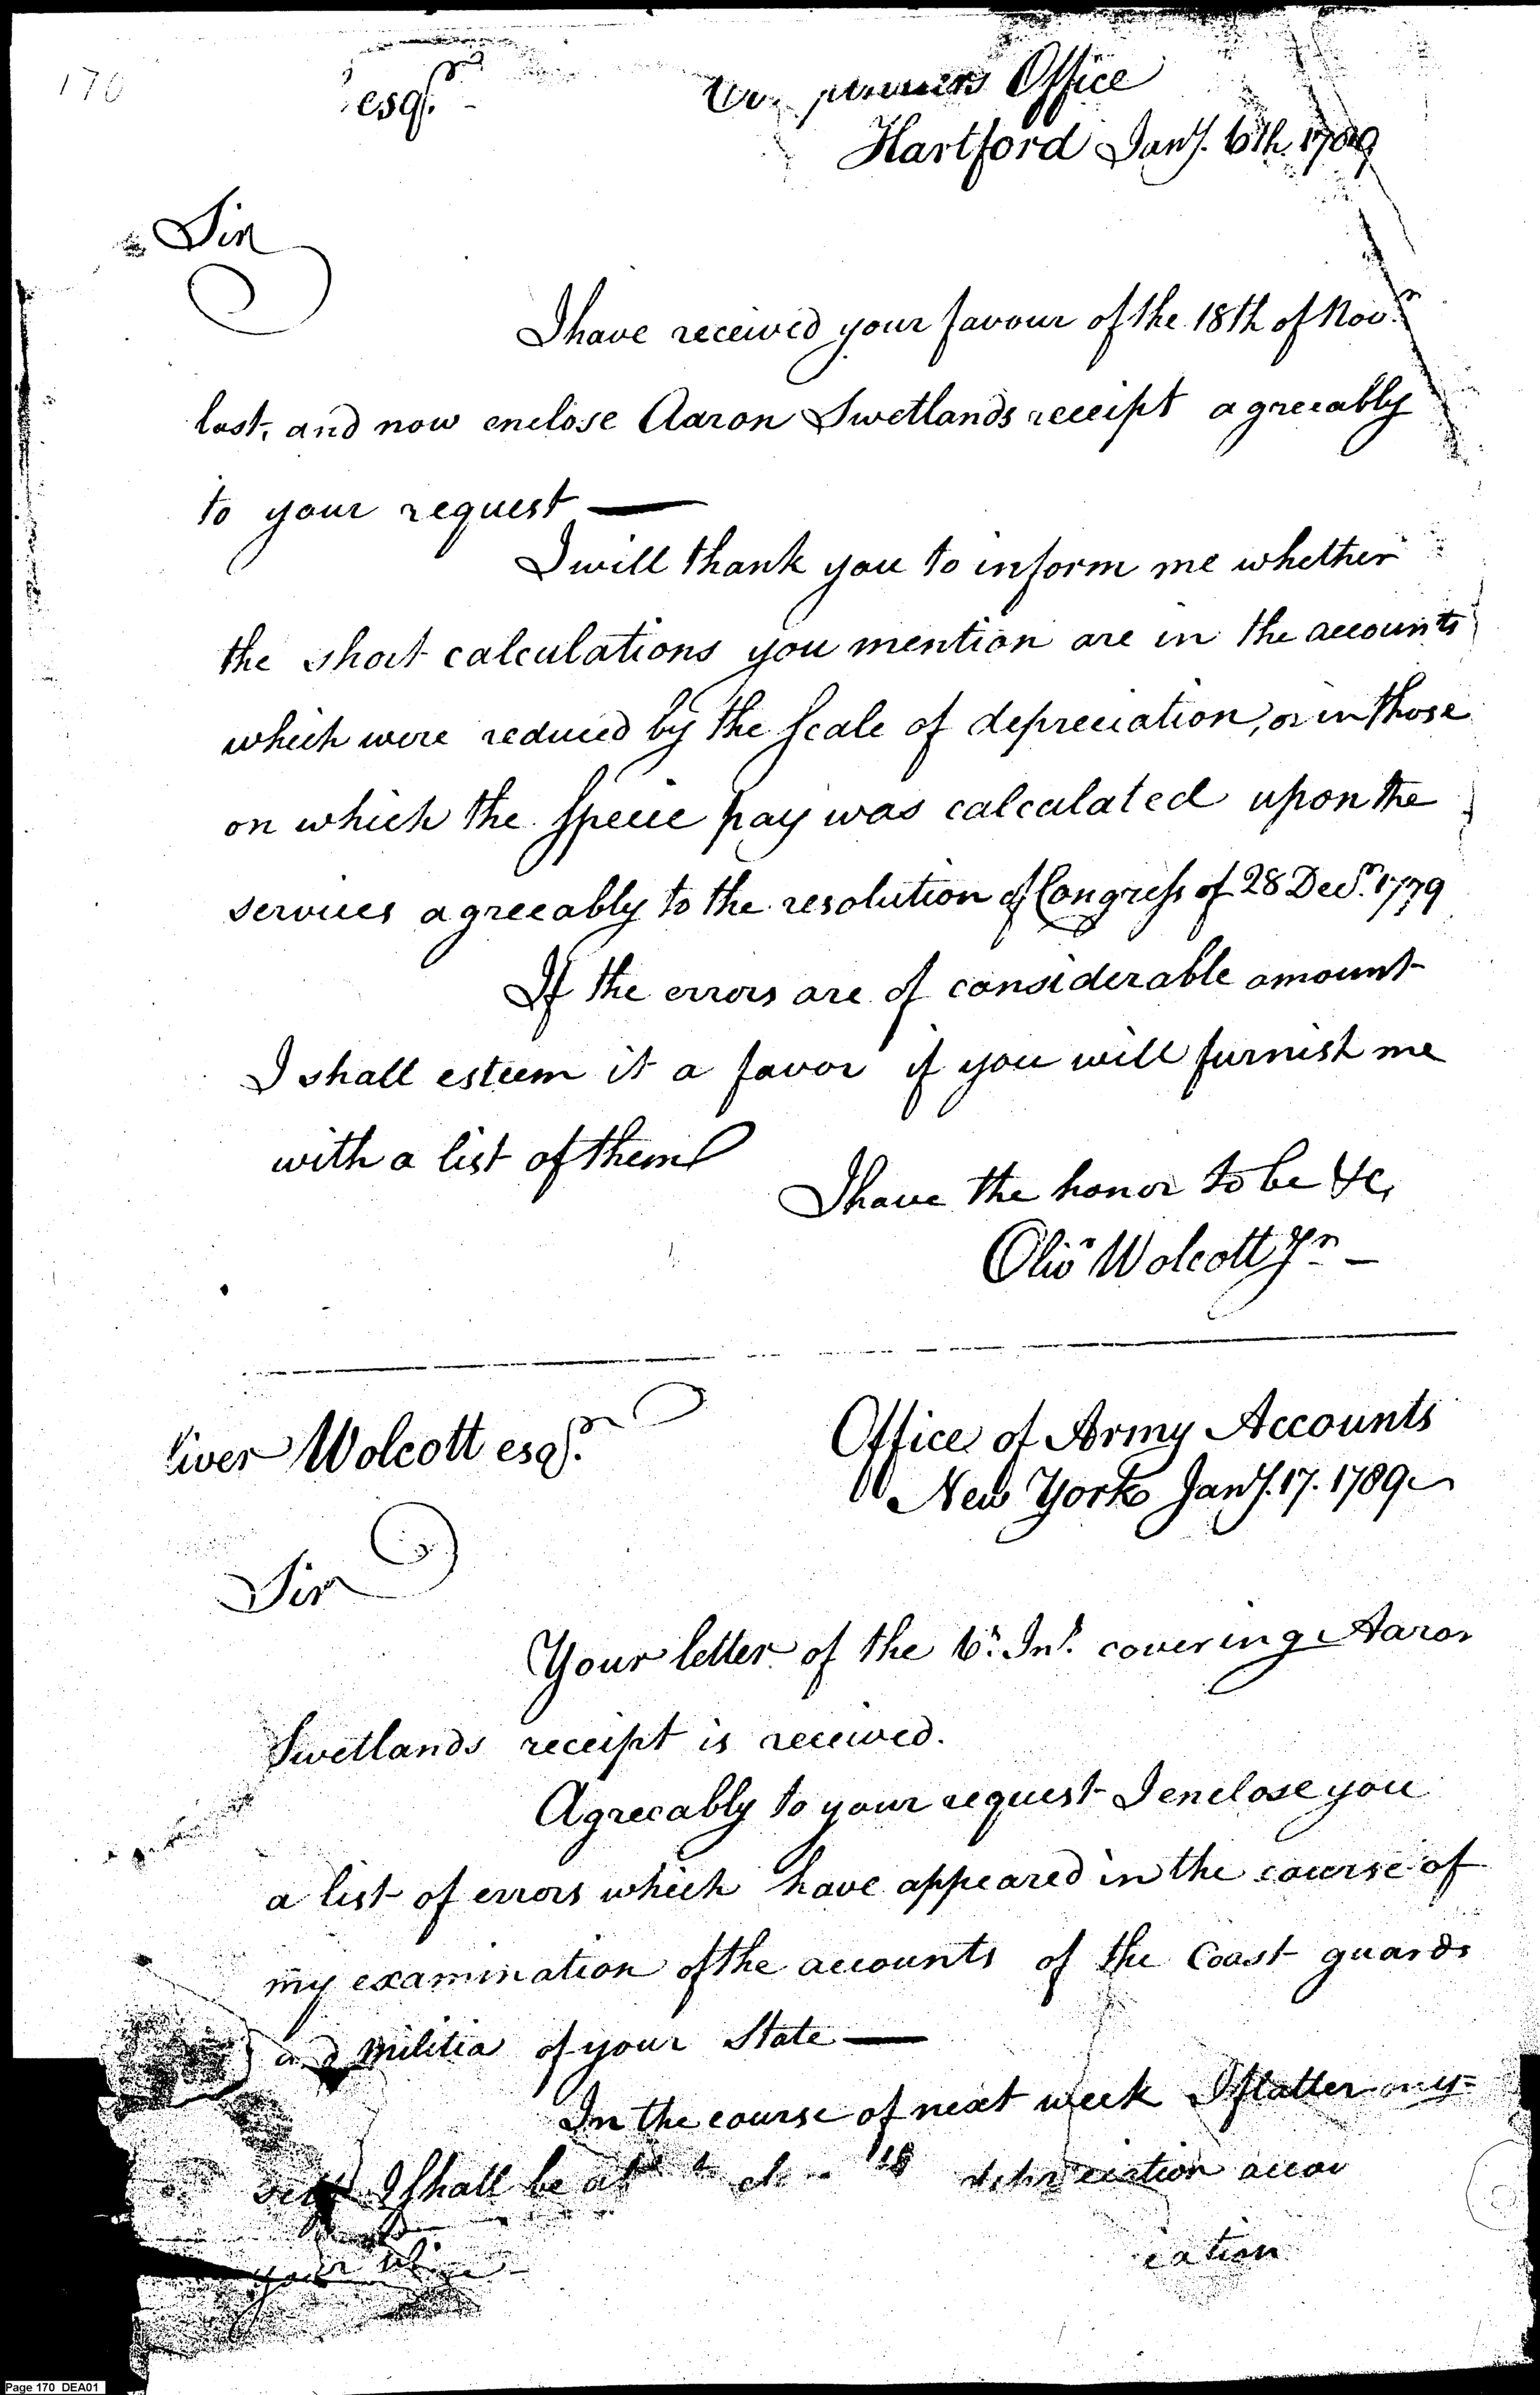 170
esqr.
Office
Hartford Jany. 6th. 1789
Sir
I have received your favour of the 18th of Novr.
last, and now enclose Aaron Swetlands receipt agreeably
to your request —
I will thank you to inform me whether
the short calculations you mention are in the accounts
which were reduced by the Scale of depreciation, or in those
on which the Specie pay was calculated upon the
services agreeably to the resolution of Congress of 28 Decr. 1779
If the errors are of considerable amount
I shall esteem it a favor if you will furnish me
with a list of them
I have the honor to be &c,
Olivr Wolcott Jr. —
liver Wolcott esqr.
Office of Army Accounts
New York Jany. 17. 1789
Sir
Your letter of the 6th. Inst. covering Aaron
Swetlands receipt is received.
Agreeably to your request I enclose you
a list of errors which have appeared in the course of
my examination of the accounts of the Coast guards
and Militia of your State —
In the course of next week I flatter my=
self I shall be depreciation accou
your
ciation
Page 170 DEA01